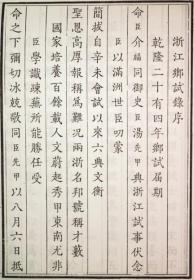 浙江鄉試錄序
乾隆二十有四年鄉試屆期
命臣介福同御史臣湯先甲典浙江試事伏念
臣以滿洲世臣叨蒙
簡拔自辛未會試以來六典文衡
聖恩高厚報稱爲難況兩浙名邦號稱才藪
國家培養百餘載人文蔚起秀甲東南尤非
臣學識疎蕪所能勝任受
命之下彌切冰兢敬同臣先甲以八月六日抵